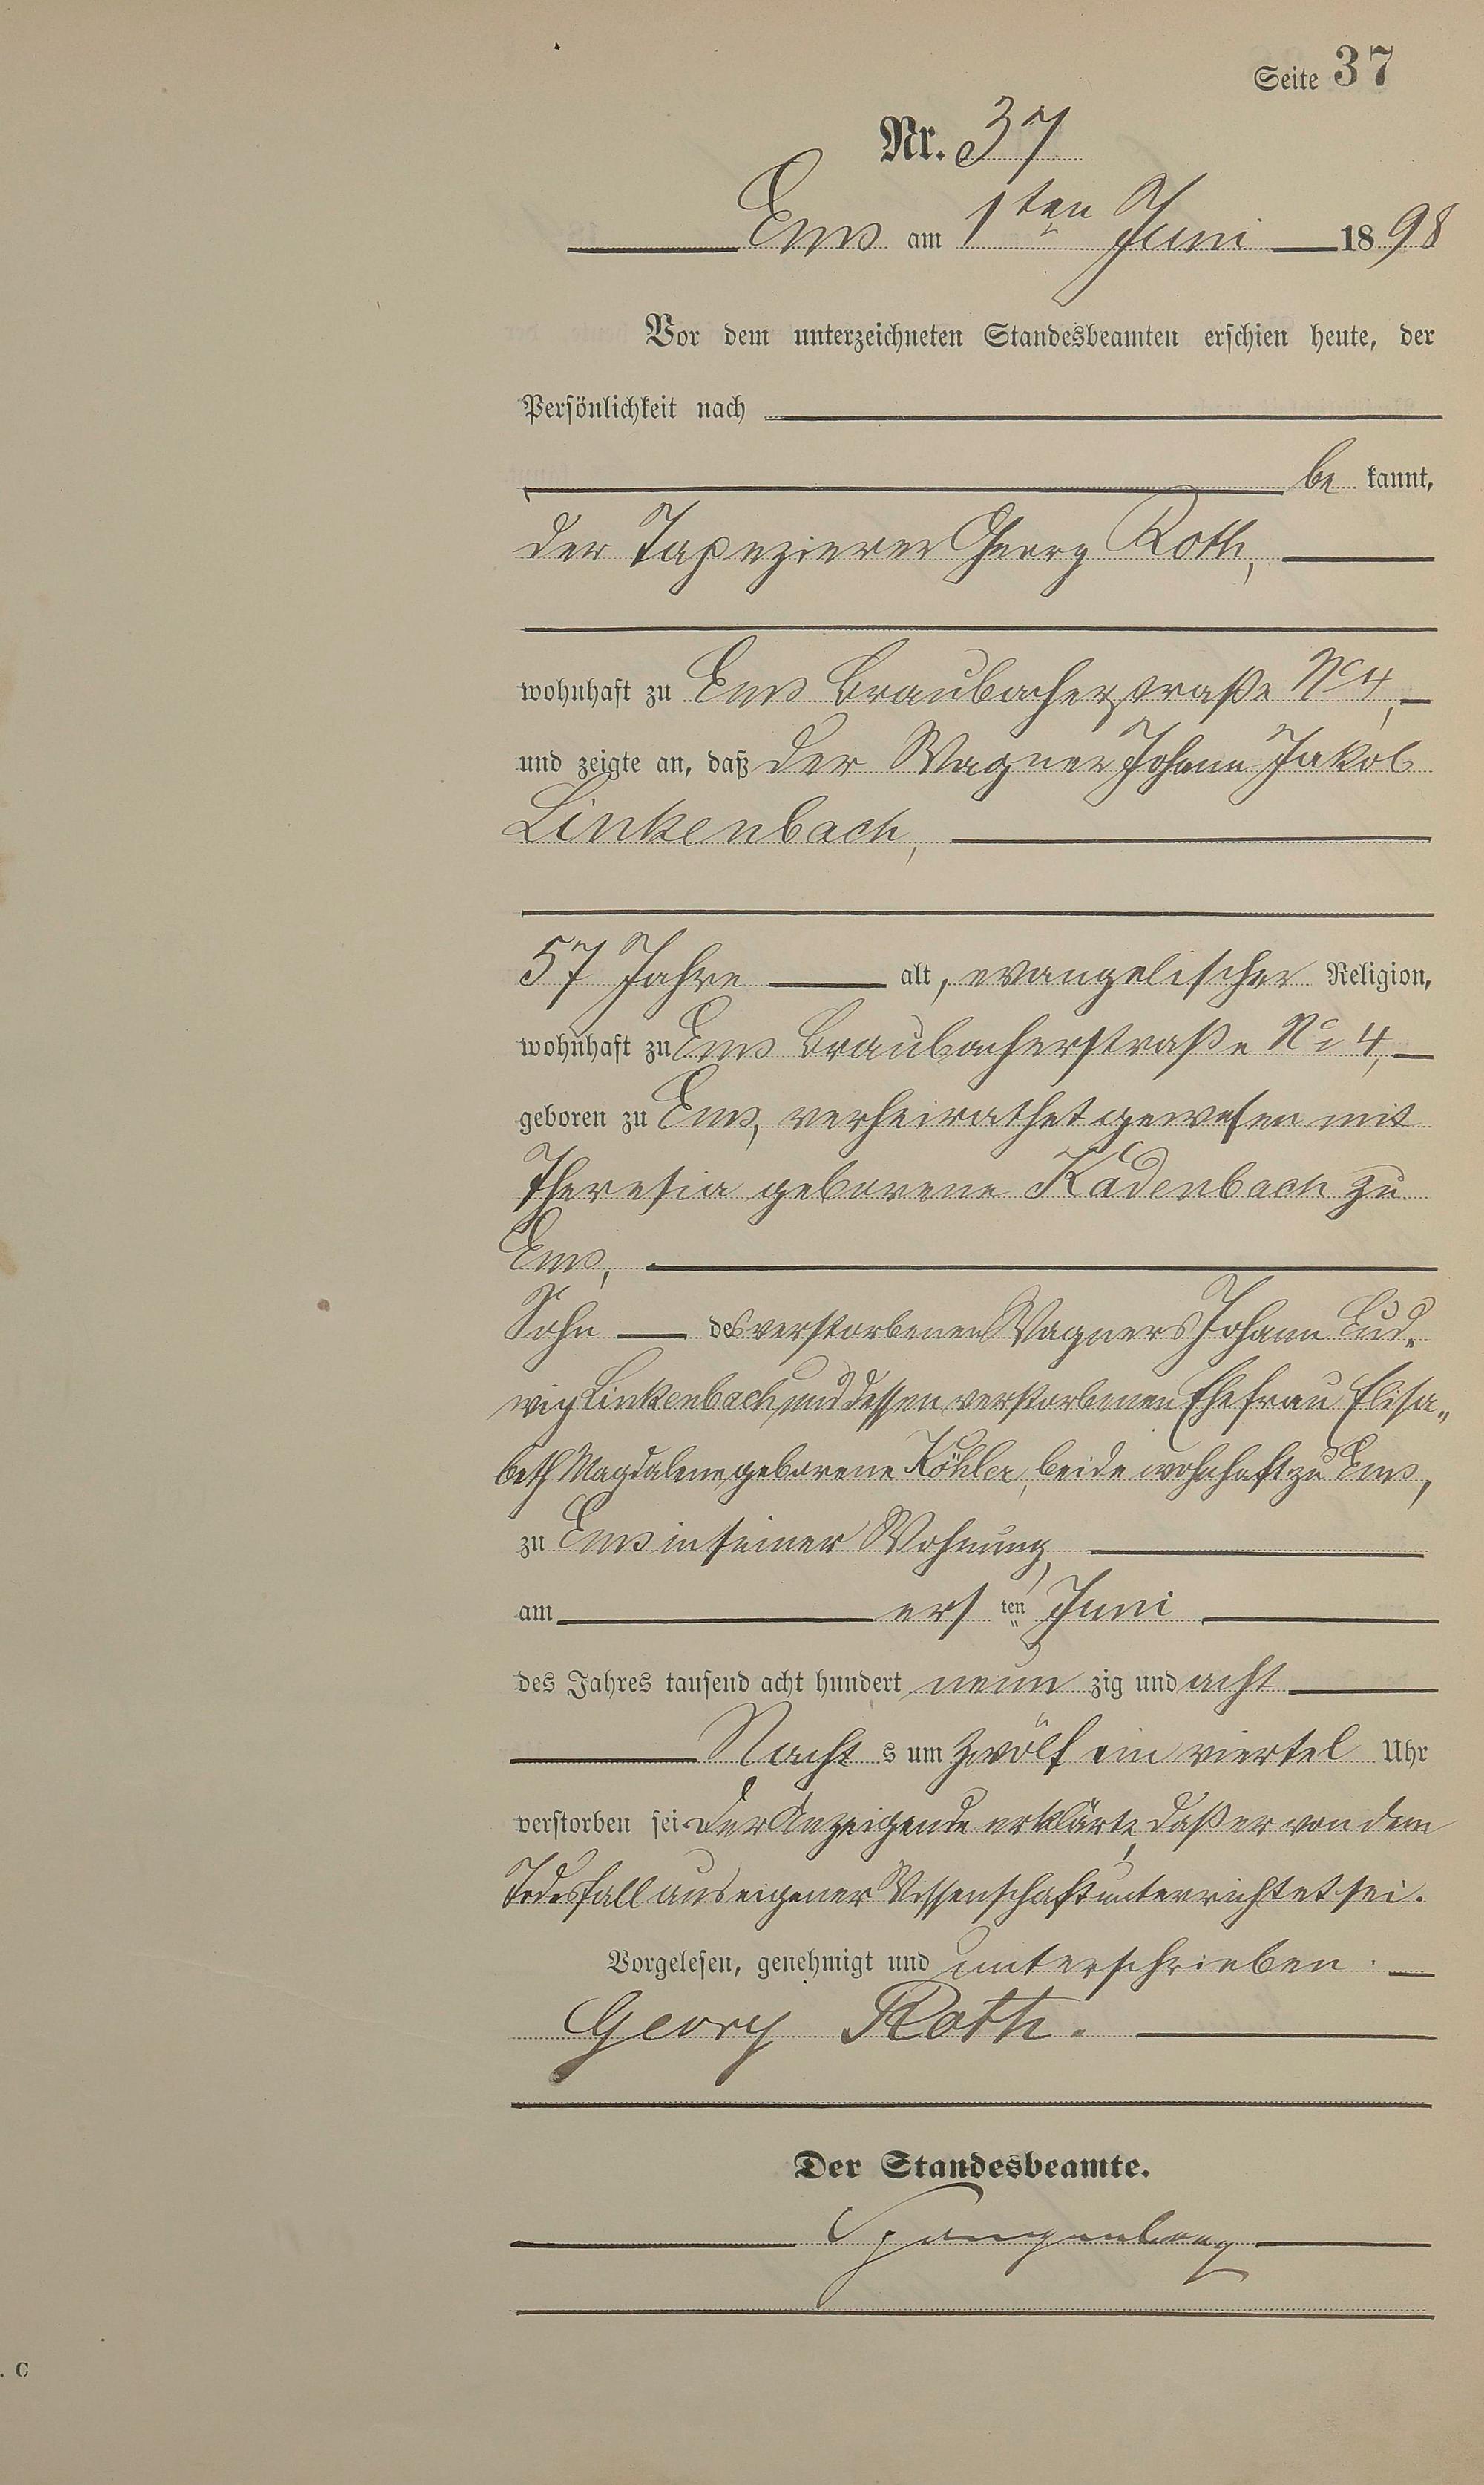 Seite 37
Nr. 37
Ems am 1ten Juni 1898
Vor dem unterzeichneten Standesbeamten erschien heute, der
Persönlichkeit nach
be kannt,
der Tapezierer Georg Roth,
wohnhaft zu Ems Braubacherstraße No 4,
und zeigte an, daß der Wagner Johann Jakob
Linkenbach,
57 Jahre alt, evangelischer Religion,
wohnhaft zu Ems Braubacherstraße No 4,
geboren zu Ems, verheirathet gewesen mit
Theresia geborene Kadenbach zu
Ems,
Sohn des verstorbenen Wagners Johann Lud„
wig Linkenbach und dessen verstorbenen Ehefrau Elisa„
beth Magdalene geborene Köhler, beide wohnhaft zu Ems,
zu Ems in seiner Wohnung,
am ersten Juni
des Jahres tausend acht hundert neun zig und acht
Nacht s um zwölf ein viertel Uhr
verstorben sei. Der Anzeigende erklärte, daß er von dem
Todesfall aus eigener Wissenschaft unterrichtet sei.
Vorgelesen, genehmigt und unterschrieben.
Georg Roth.
Der Standesbeamte.
Spangenberg
. C